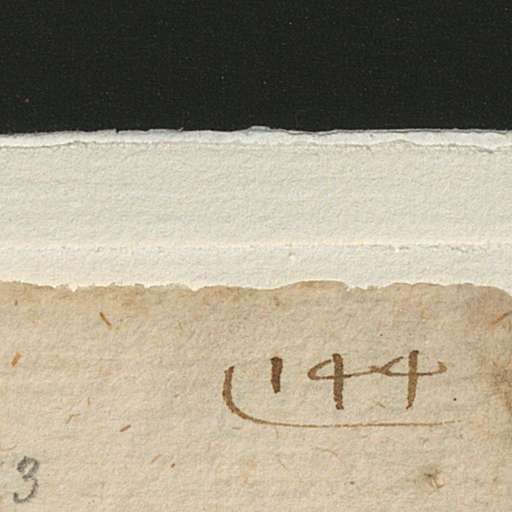 144
3